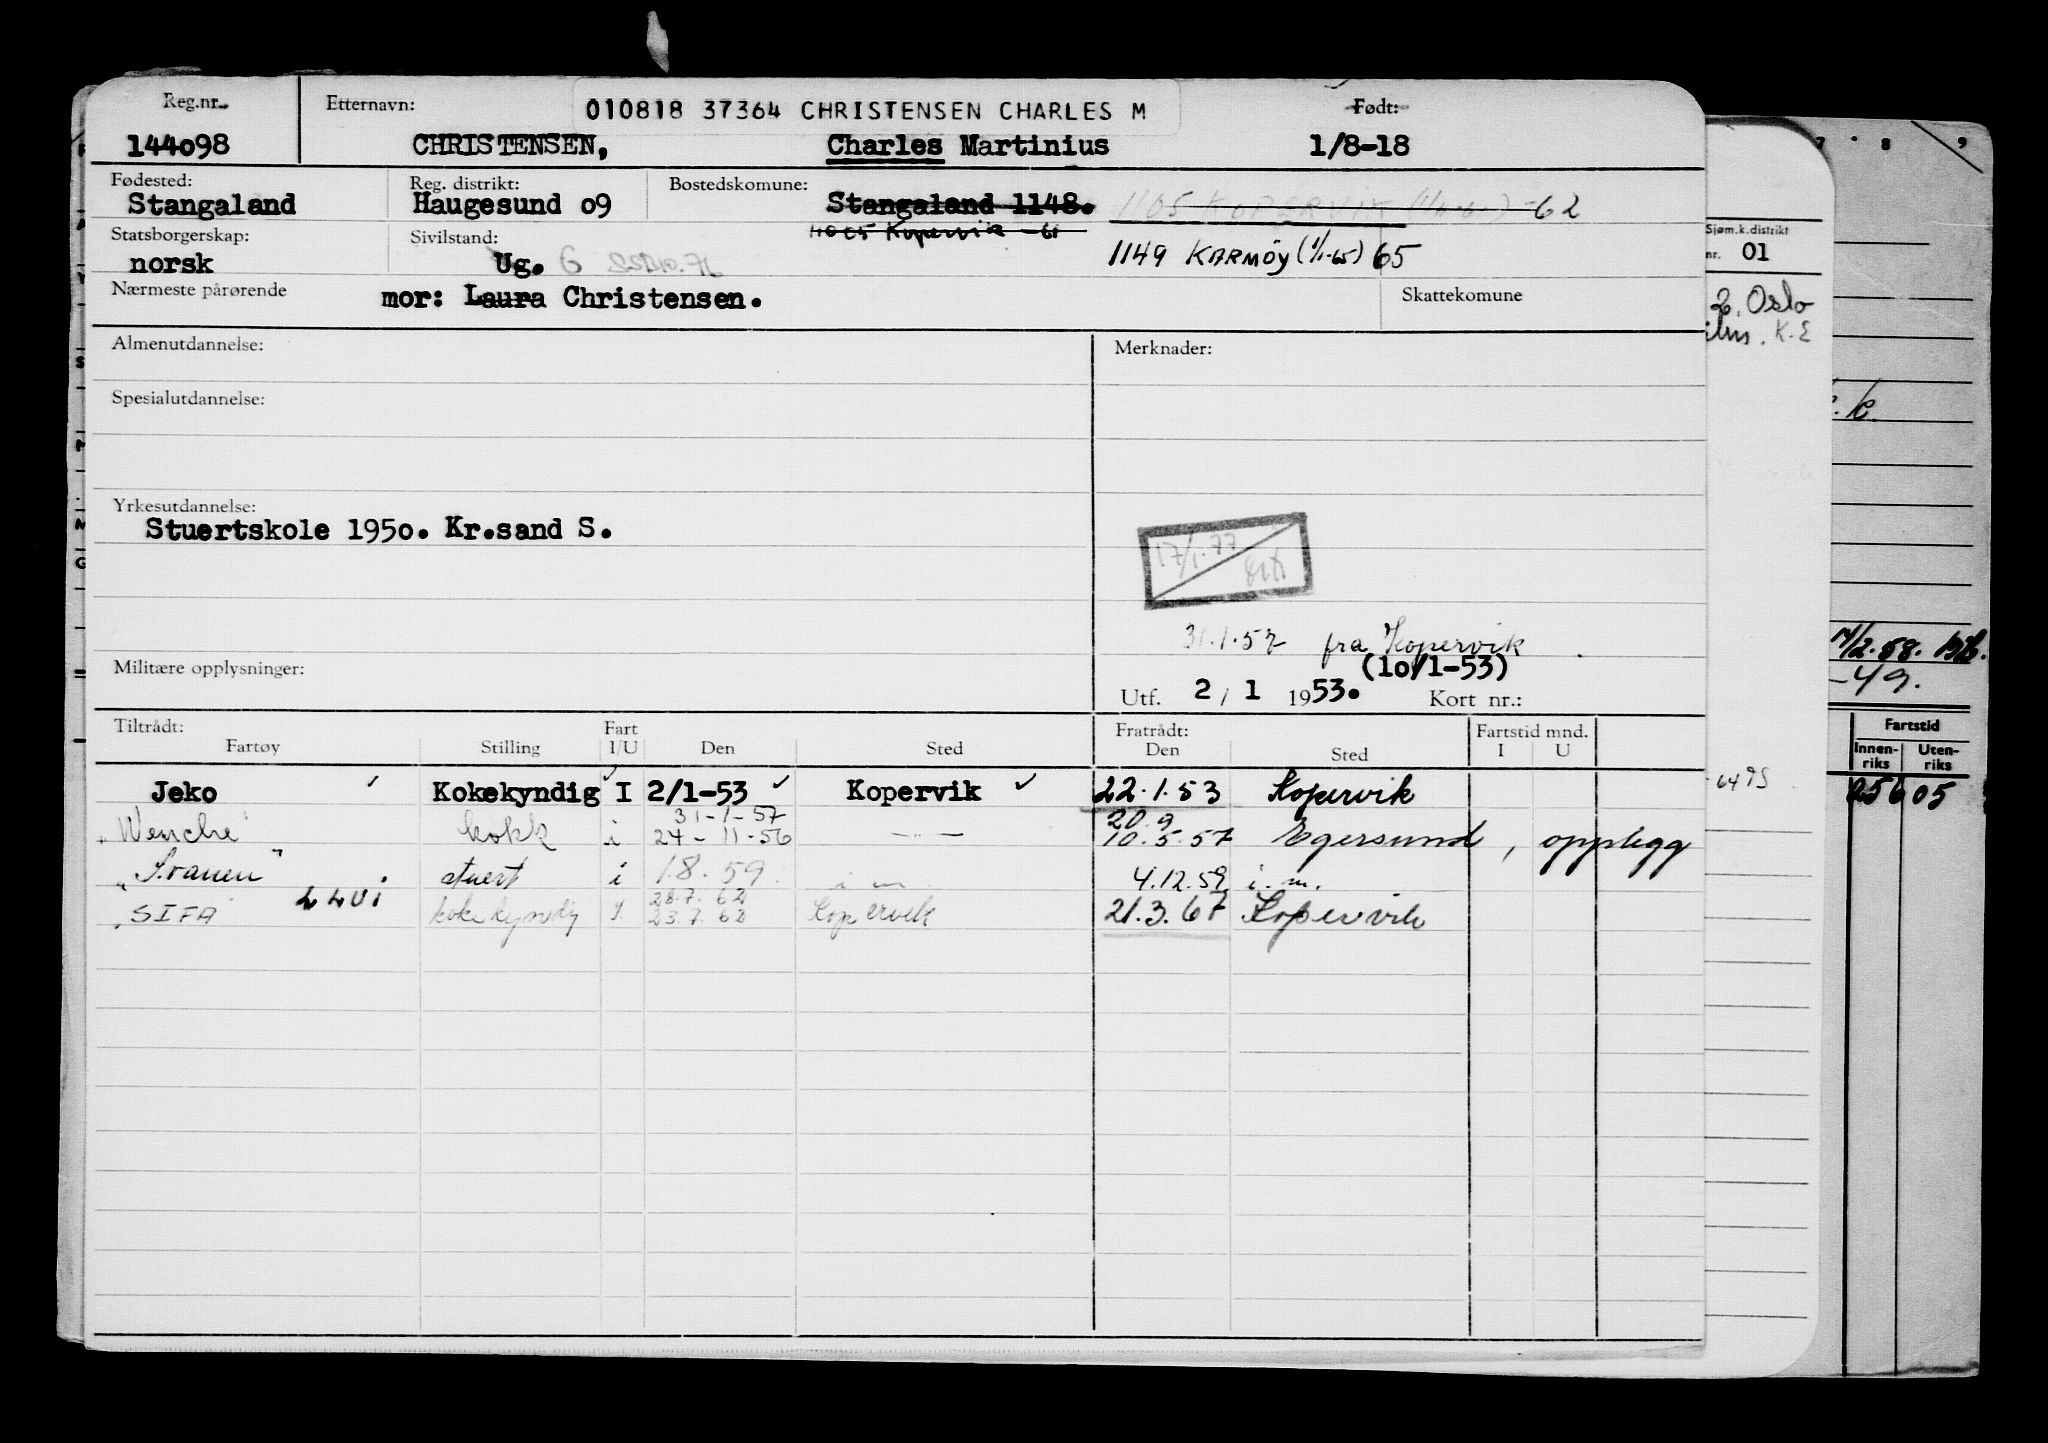 Reg.nr. Etternavn: 010818 37364 CHRISTENSEN CHARLES M Født:
144o98 CHRISTENSEN, Charles Martinius 1/8-18
Fødested: Reg. distrikt: Bostedskomune:
Stangaland Haugesund o9 Stangaland 1148. 1105 KOPERVIK -62
Statsborgerskap: Sivilstand: Kopervik
norsk Ug. G 1149 KARMÖY (1/1-65) 65
Nærmeste pårørende mor: Laura Christensen. Skattekomune
Almenutdannelse: Merknader:
Spesialutdannelse:
Yrkesutdannelse:
Stuertskole 195o. Kr.sand S.
17/1.77
31.1.57 fra Kopervik
(1o/1-53)
Militære opplysninger:
Utf. 2 / 1 1953. Kort nr.:
Tiltrådt: Fart Fratrådt: Fartstid mnd.
Fartøy Stilling I/U Den Sted Den Sted I U
Jeko Kokekyndig I 2/1-53 Kopervik 22.1.53 Kopervik
31-1-57 20.9
"Wenche" kokk i 24-11-56 — — 10.5.57 Egersund, opplegg
stuert i 18.59 i m 4.12.59 i. m.
28.7.62
"SIFA LLUI kokekyndig 23.7.62 Kopervik 21.3.67 Kopervik
7 8 9
Sjøm.k.distrikt
nr. 01
2, Oslo
K.E
-49.
Fartstid
Innen-riks Uten-riks
05